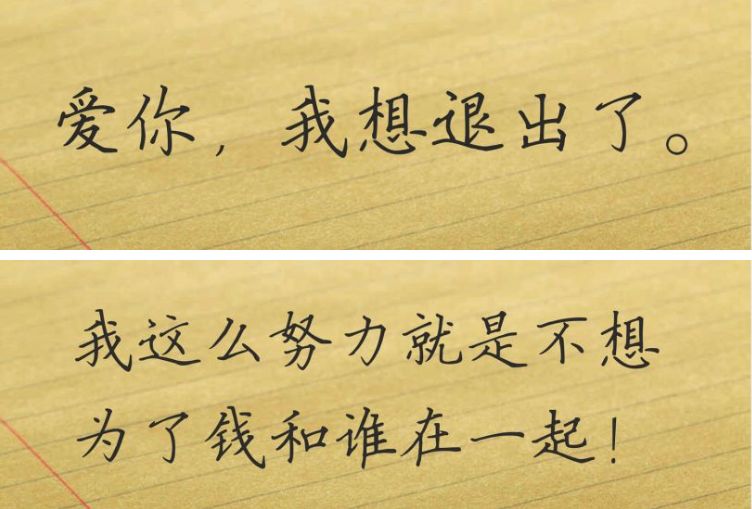 爱你，我想退出了。
我这么努力就是不想
为了钱和谁在一起！